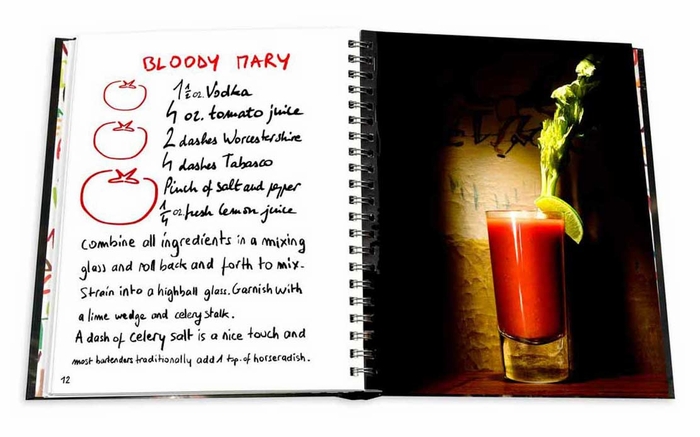 BLOODY MARY
1 1/2 oz. Vodka
4 oz. tomato juice
2 dashes Worcestershire
4 dashes Tabasco
Pinch of salt and pepper
1/4 oz fresh lemon juice
Combine all ingredients in a mixing
glass and roll back and forth to mix.
Strain into a highball glass. Garnish with
a lime wedge and celery stalk.
A dash of celery salt is a nice touch and
most bartenders traditionally add 1 tsp. of horseradish.
12